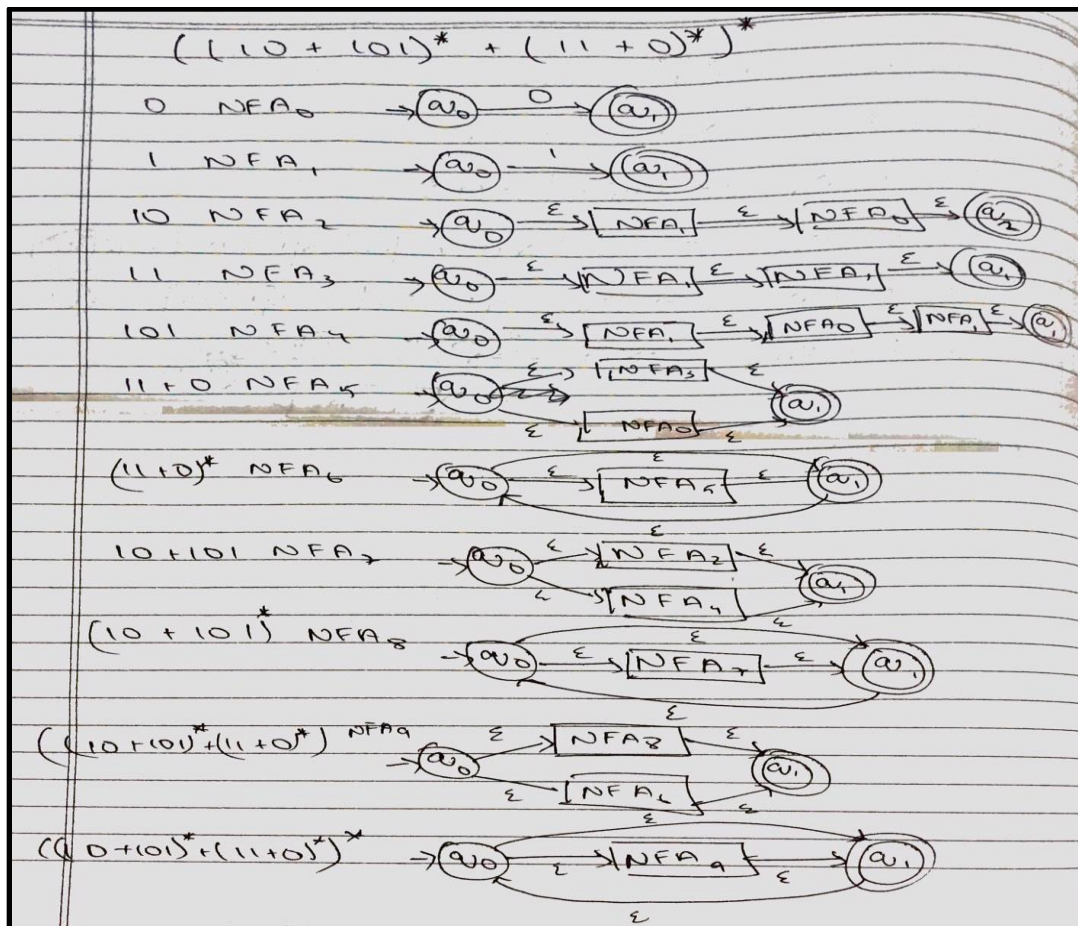 ((10 + 101)* + (11 + 0)*)*
0 NFA₀ → q₀ 0 q₁
1 NFA₁ → q₀ 1 q₁
10 NFA₂ → q₀ ε NFA₁ ε NFA₀ ε q₂
11 NFA₃ → q₀ ε NFA₁ ε NFA₁ ε q₁
101 NFA₄ → q₀ ε NFA₁ ε NFA₀ ε NFA₁ ε q₁
11+0 NFA₅ → q₀ ε NFA₃ ε q₁
ε NFA₀ ε
ε
(11+0)* NFA₆ → q₀ ε NFA₅ ε q₁
ε
10+101 NFA₇ → q₀ ε NFA₂ ε q₁
ε NFA₄ ε
ε
(10 + 101)* NFA₈ → q₀ ε NFA₇ ε q₁
ε
((10+101)*+(11+0)*) NFA₉ → q₀ ε NFA₈ ε q₁
ε NFA₆ ε
ε
((10+101)*+(11+0)*)* → q₀ ε NFA₉ ε q₁
ε